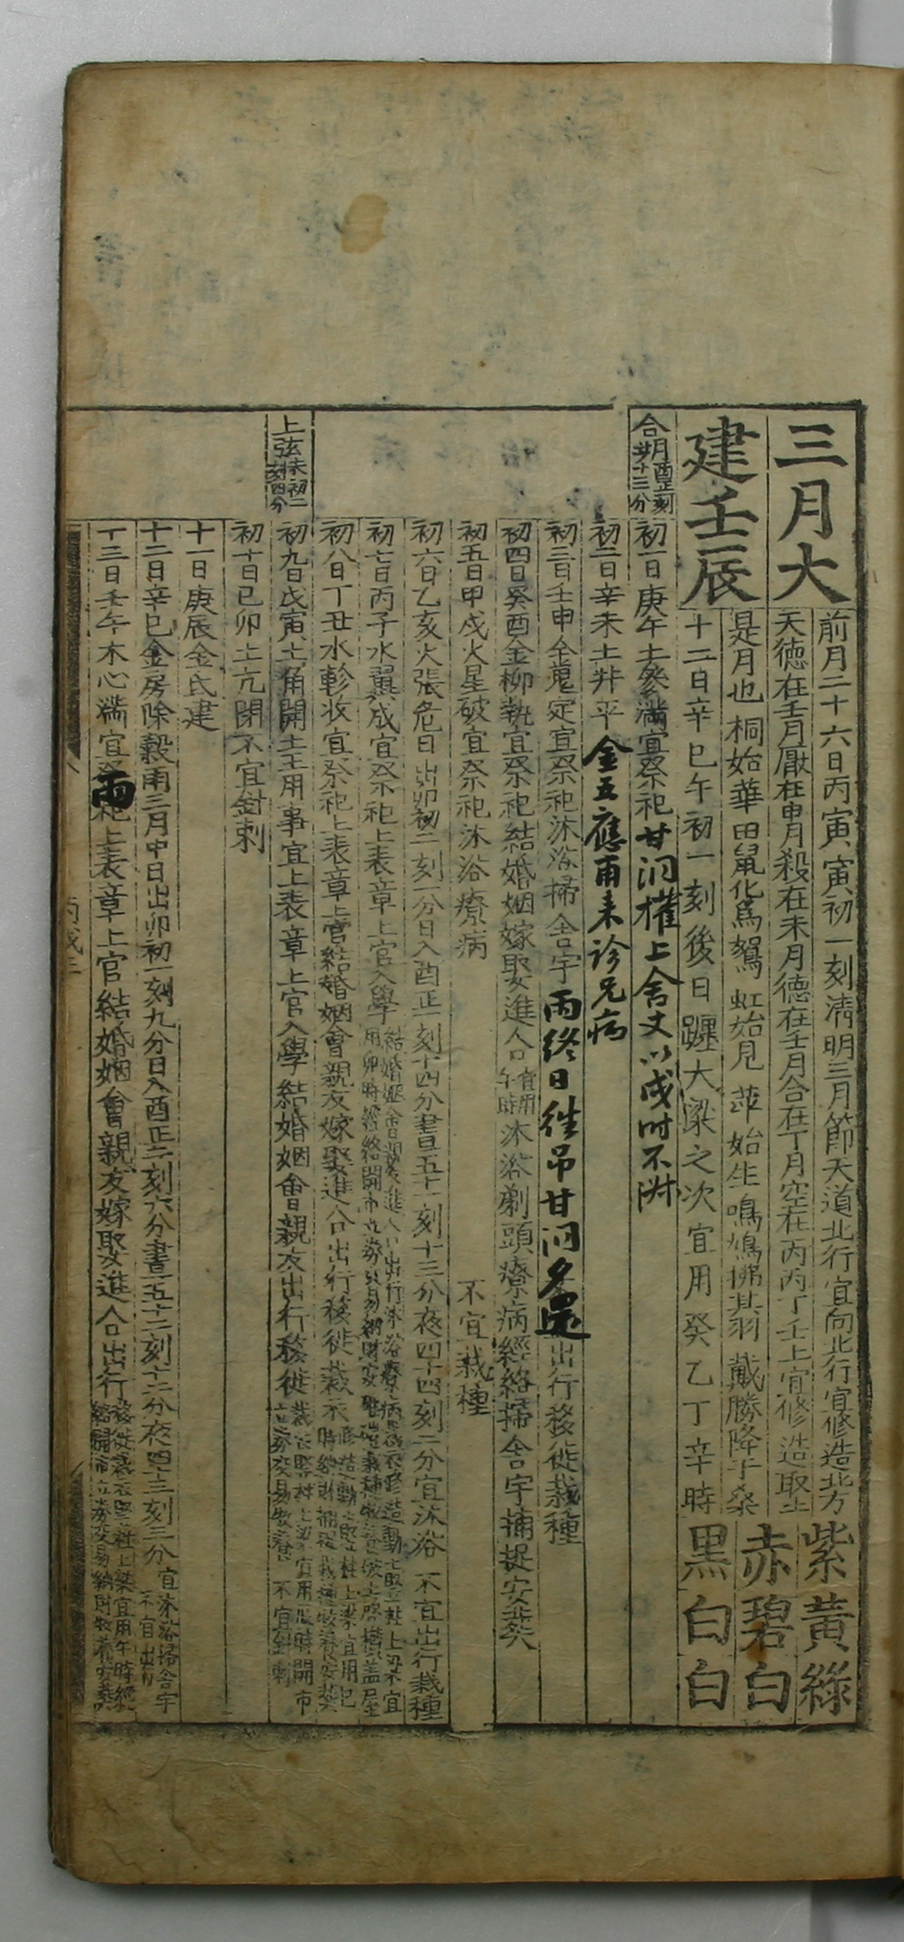 三月大
建壬辰
前月二十六日丙寅寅初一刻淸明三月節天道北行宜向北行宜修造北方
天德在壬月厭在申月殺在未月德在壬月合在丁月空在丙丙丁壬上宜修造取土
是月也桐始華田鼠化爲鴽虹始見萍始生鳴鳩拂其羽戴勝降于桑
十二日辛巳午初一刻後日躔大梁之次宜用癸乙丁辛時
紫黃綠
赤碧白
黑白白
合朔酉正三刻十三分
初一日庚午土參滿宜祭祀
甘泂權上舍丈以戌时不淑
初二日辛未土井平
金五應甫来诊兄病
初三日壬申金鬼定宜祭祀沐浴掃舍宇
雨终日往吊甘泂夕還
出行移徙栽種
初四日癸酉金柳執宜祭祀結婚姻嫁娶進人口宜用午時沐浴剃頭療病經絡掃舍宇捕捉安葬
初五日甲戌火星破宜祭祀沐浴療病
不宜栽種
初六日乙亥火張危日出卯初二刻一分日入酉正一刻十四分晝五十一刻十三分夜四十四刻二分宜沐浴 不宜出行栽種
初七日丙子水翼成宜祭祀上表章上官入學結婚姻會親友進人口出行沐浴療病裁衣修造動土竪柱上梁宜用卯時經絡開市立券交易納財安碓磑栽種牧養破土啓攢盖屋
初八日丁丑水軫收宜祭祀上表章上官結婚姻會親友嫁娶進人口出行移徙裁衣修造動土竪柱上梁宜用巳時納財捕捉栽種牧養安葬
上弦未初二刻四分
初九日戊寅土角開土王用事宜上表章上官入學結婚姻會親友出行移徙裁衣竪柱上梁宜用辰時開市立券交易牧養 不宜針刺
初十日己卯土亢閉不宜針刺
十一日庚辰金氐建
十二日辛巳金房除穀雨三月中日出卯初一刻九分日入酉正二刻六分晝五十二刻十二分夜四十三刻三分宜沐浴掃舍宇 不宜出行
十三日壬午木心滿宜祭祀上表章上官結婚姻會親友嫁娶進人口出行移徙裁衣竪柱上梁宜用午時經絡開市立券交易納財牧養安葬
雨